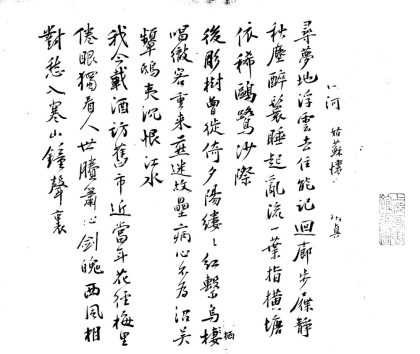 河 姑蘇懷 真
尋夢地浮雲去住能記迴廊步屧靜
秋塵醉鬟睡起亂流一葉指橫塘
依稀鷗鷺沙際
後彫樹曾徙倚夕陽縷々紅繫烏棲
栖
唱徹客重來蕪迷故壘病心不為沼吳
顰鴟夷沈恨江水
我今載酒訪舊市近當年花徑梅里
倦眼獨看人世賸簫心劍魄西風相
對愁入寒山鐘聲裏